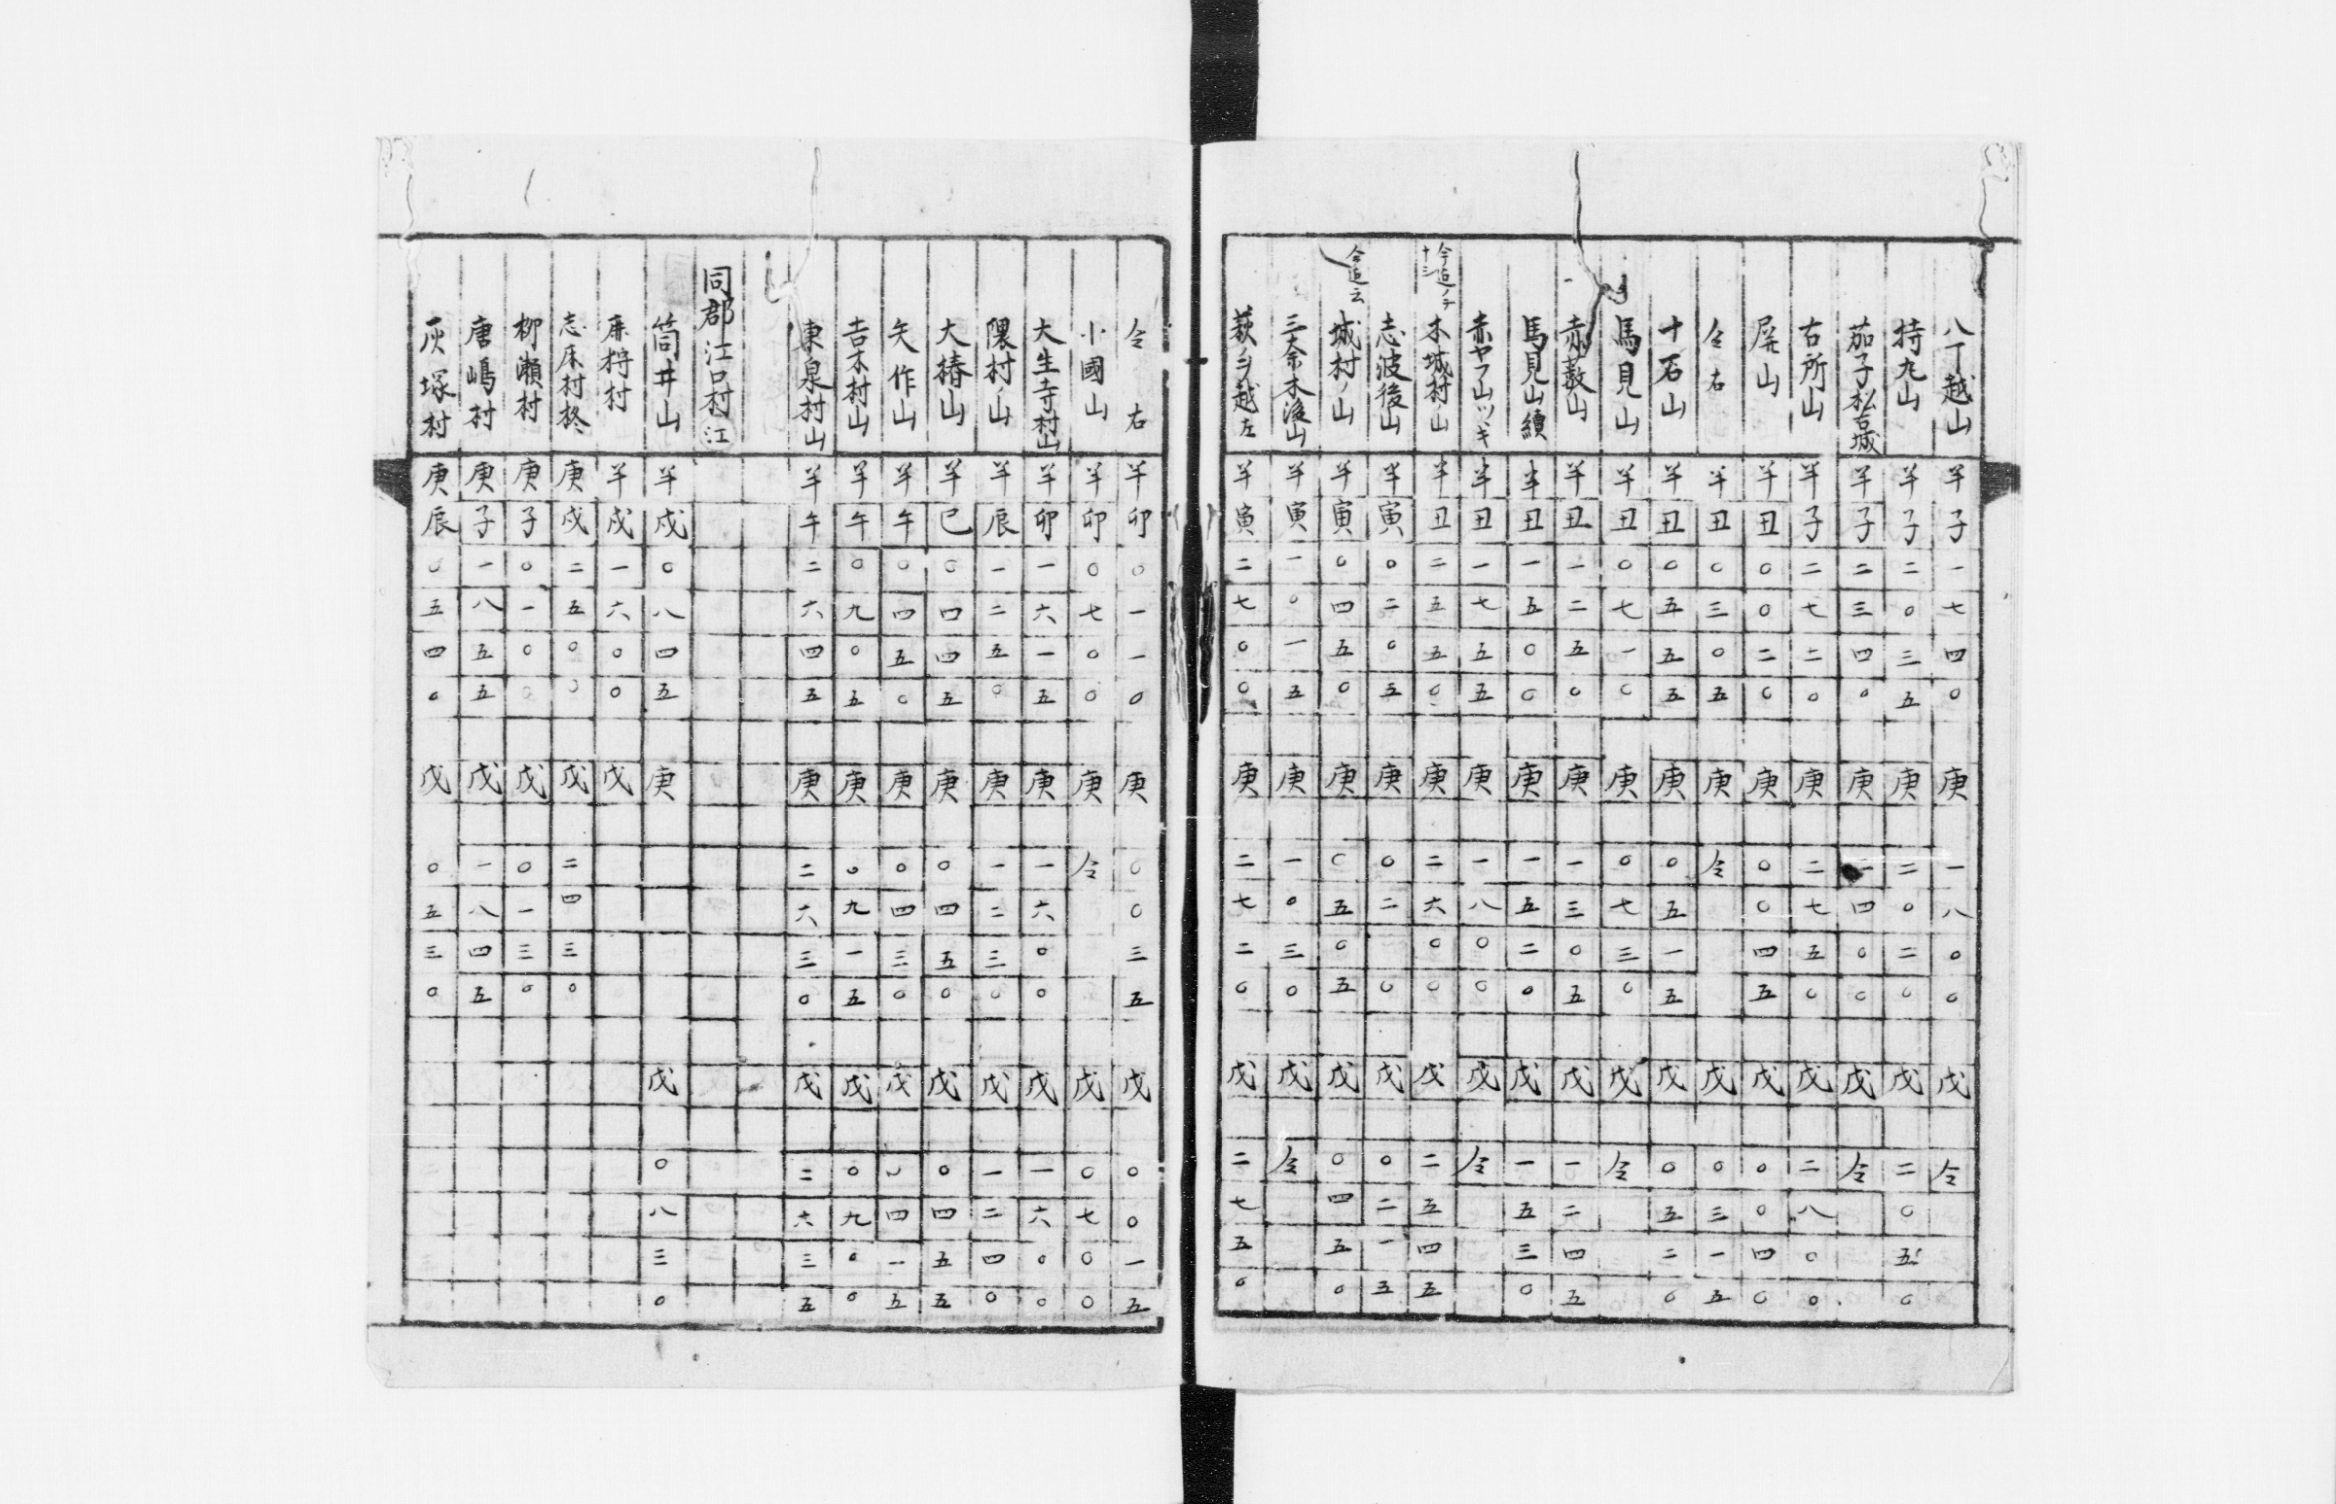 八丁越山 半子一七四〇 庚一八〇〇 戊仝
持丸山 半子二〇三五 庚二〇二〇 戊二〇五〇
茄子松古城 半子二三四〇 庚二四〇〇 戊仝
右所山 半子二七二〇 庚二七五〇 戊二八〇〇
屏山 半丑〇〇二〇 庚〇〇四五 戊〇〇四〇
仝右 半丑〇三〇五 庚仝 戊〇三一五
十石山 半丑〇五五五 庚〇五一五 戊〇五二〇
馬見山 半丑〇七一〇 庚〇七三〇 戊仝
赤藪山 半丑一二五〇 庚一三〇五 戊一二四五
馬見山續 半丑一五〇〇 庚一五二〇 戊一五三〇
赤ヤフ山ツヾキ 半丑一七五五 庚一八〇〇 戊仝
木城村ノ山 半丑二五五〇 庚二六〇〇 戊二五四五
志波後山 半寅〇二〇五 庚〇二 〇 戊〇二一五
今迫云
城村ノ山 半寅〇四五〇 庚〇五〇五 戊〇四五〇
三奈木後山 半寅一〇一五 庚一〇三〇 戊仝
萩ヲラ越左 半寅二七〇〇 庚二七二〇 戊二七五〇
仝右 半卯〇一一〇 庚〇〇三五 戊〇〇一五
小國山 半卯〇七〇〇 庚仝 戊〇七〇〇
大生寺村山 半卯一六一五 庚一六〇〇 戊一六〇〇
隈村山 半辰一二五〇 庚一二三〇 戊一二四〇
大椿山 半巳〇四四五 庚〇四五〇 戊〇四五五
矢作山 半午〇四五〇 庚〇四三〇 戊〇四一五
吉木村山 半午〇九〇五 庚〇九一五 戊〇九〇〇
東泉村山 半午二六四五 庚二六三〇 戊二六三五
同郡江口村 江
筒井山 半戌〇八四五 庚 戊〇八三〇
麻狩村 半戌一六〇〇 戊
志床村柊 庚戌二五〇〇 戊二四三〇
柳瀬村 庚子〇一〇〇 戊〇一三〇
唐嶋村 庚子一八五五 戊一八四五
灰塚村 庚辰〇五四〇 戊〇五三〇